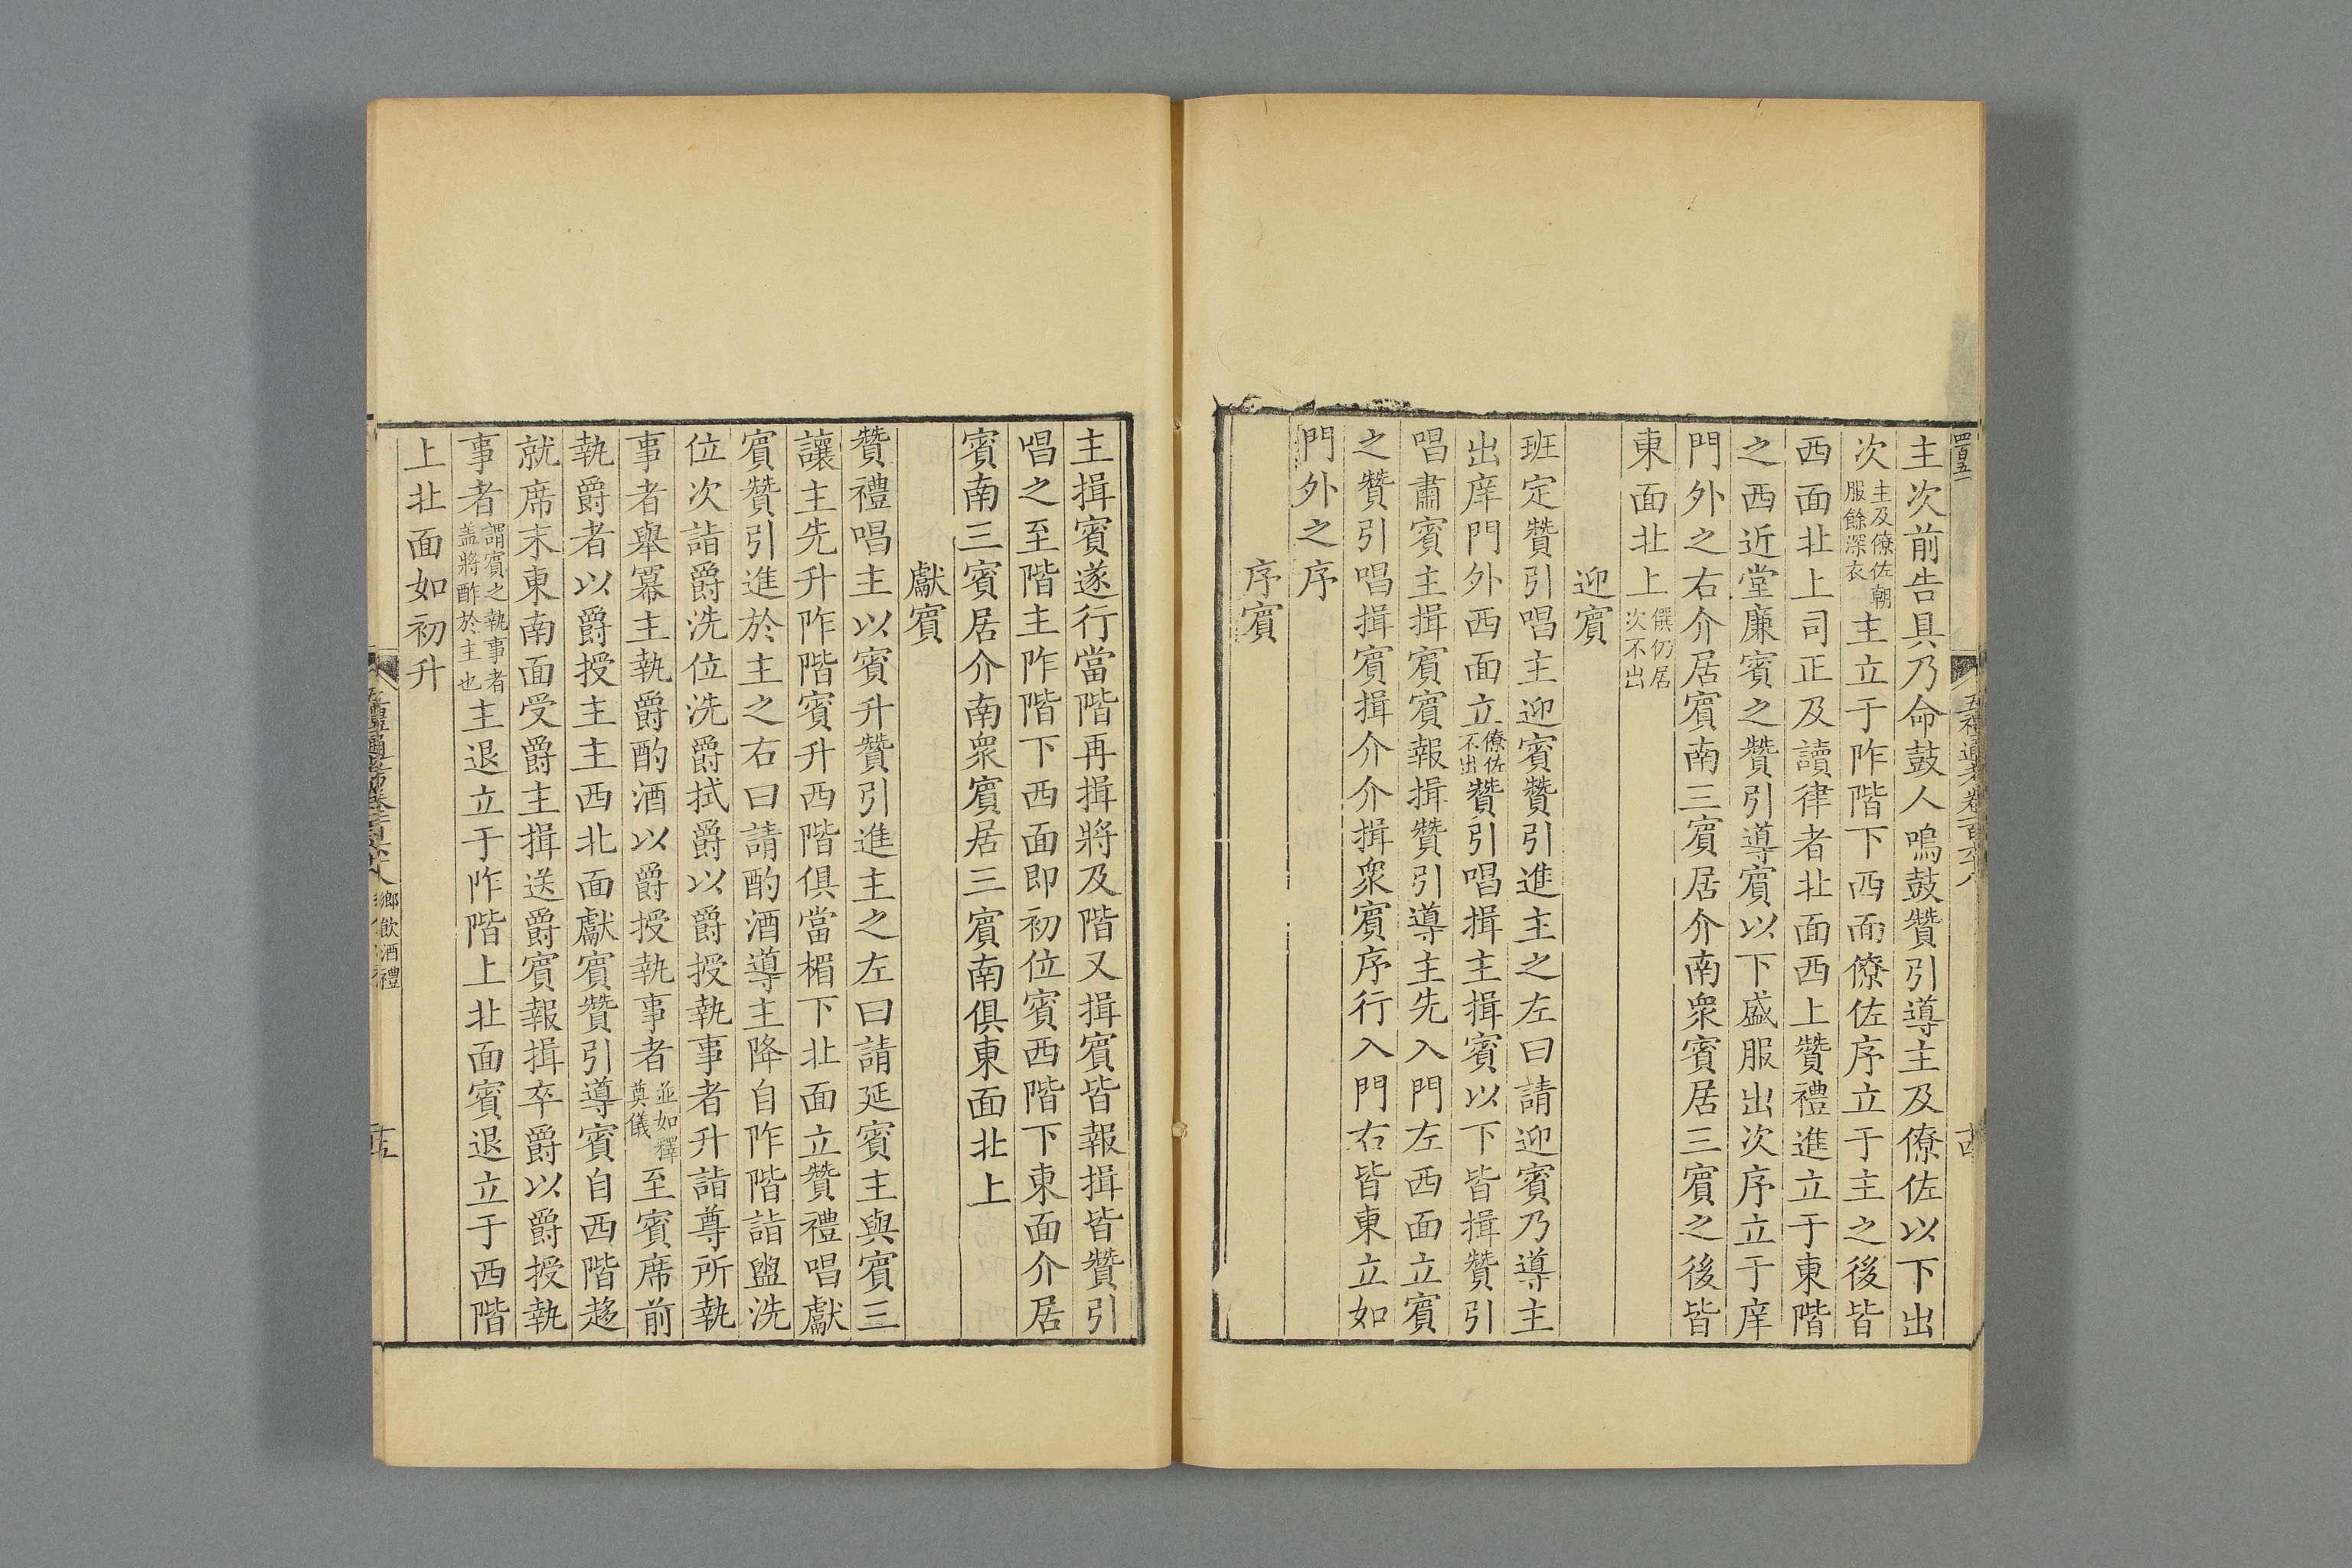 四百五一
五禮通考卷一百六十八
主次前告具乃命鼓人鳴鼓贊引導主及僚佐以下出
次主及僚佐朝服餘深衣主立于阼階下西面僚佐序立于主之後皆
西面北上司正及讀律者北面西上贊禮進立于東階
之西近堂廉賓之贊引導賓以下盛服出次序立于庠
門外之右介居賓南三賓居介南衆賓居三賓之後皆
東面北上僎仍居次不出
迎賓
班定贊引唱主迎賓贊引進主之左曰請迎賓乃導主
出庠門外西面立僚佐不出贊引唱揖主揖賓以下皆揖贊引
唱肅賓主揖賓賓報揖贊引導主先入門左西面立賓
之贊引唱揖賓揖介介揖衆賓序行入門右皆東立如
門外之序
序賓
主揖賓遂行當階再揖將及階又揖賓皆報揖皆贊引
唱之至階主阼階下西面即初位賓西階下東面介居
賓南三賓居介南衆賓居三賓南俱東面北上
獻賓
贊禮唱主以賓升贊引進主之左曰請延賓主與賓三
讓主先升阼階賓升西階俱當楣下北面立贊禮唱獻
賓贊引進於主之右曰請酌酒導主降自阼階詣盥洗
位次詣爵洗位洗爵拭爵以爵授執事者升詣尊所執
事者舉冪主執爵酌酒以爵授執事者並如釋奠儀至賓席前
執爵者以爵授主主西北面獻賓贊引導賓自西階趨
就席末東南面受爵主揖送爵賓報揖卒爵以爵授執
事者謂賓之執事者盖將酢於主也主退立于阼階上北面賓退立于西階
上北面如初升
鄉飲酒禮